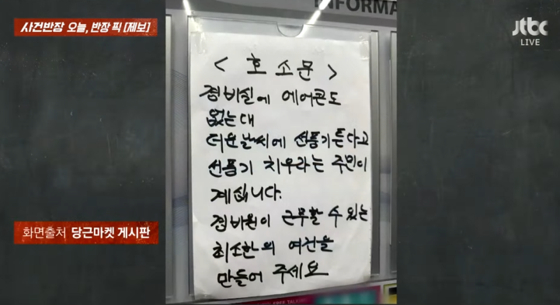 사건반장 오늘, 반장 픽 [제보]
INFORMA
jtbc
LIVE
< 호 소 문 >
경비실에 에어콘도
없는대
더운날씨에 선풍기튼다고
선풍기 치우라는 주민이
계십니다.
경비원이 근무할 수 있는
최소한의 여건을
만들어 주세요
화면출처 당근마켓 게시판